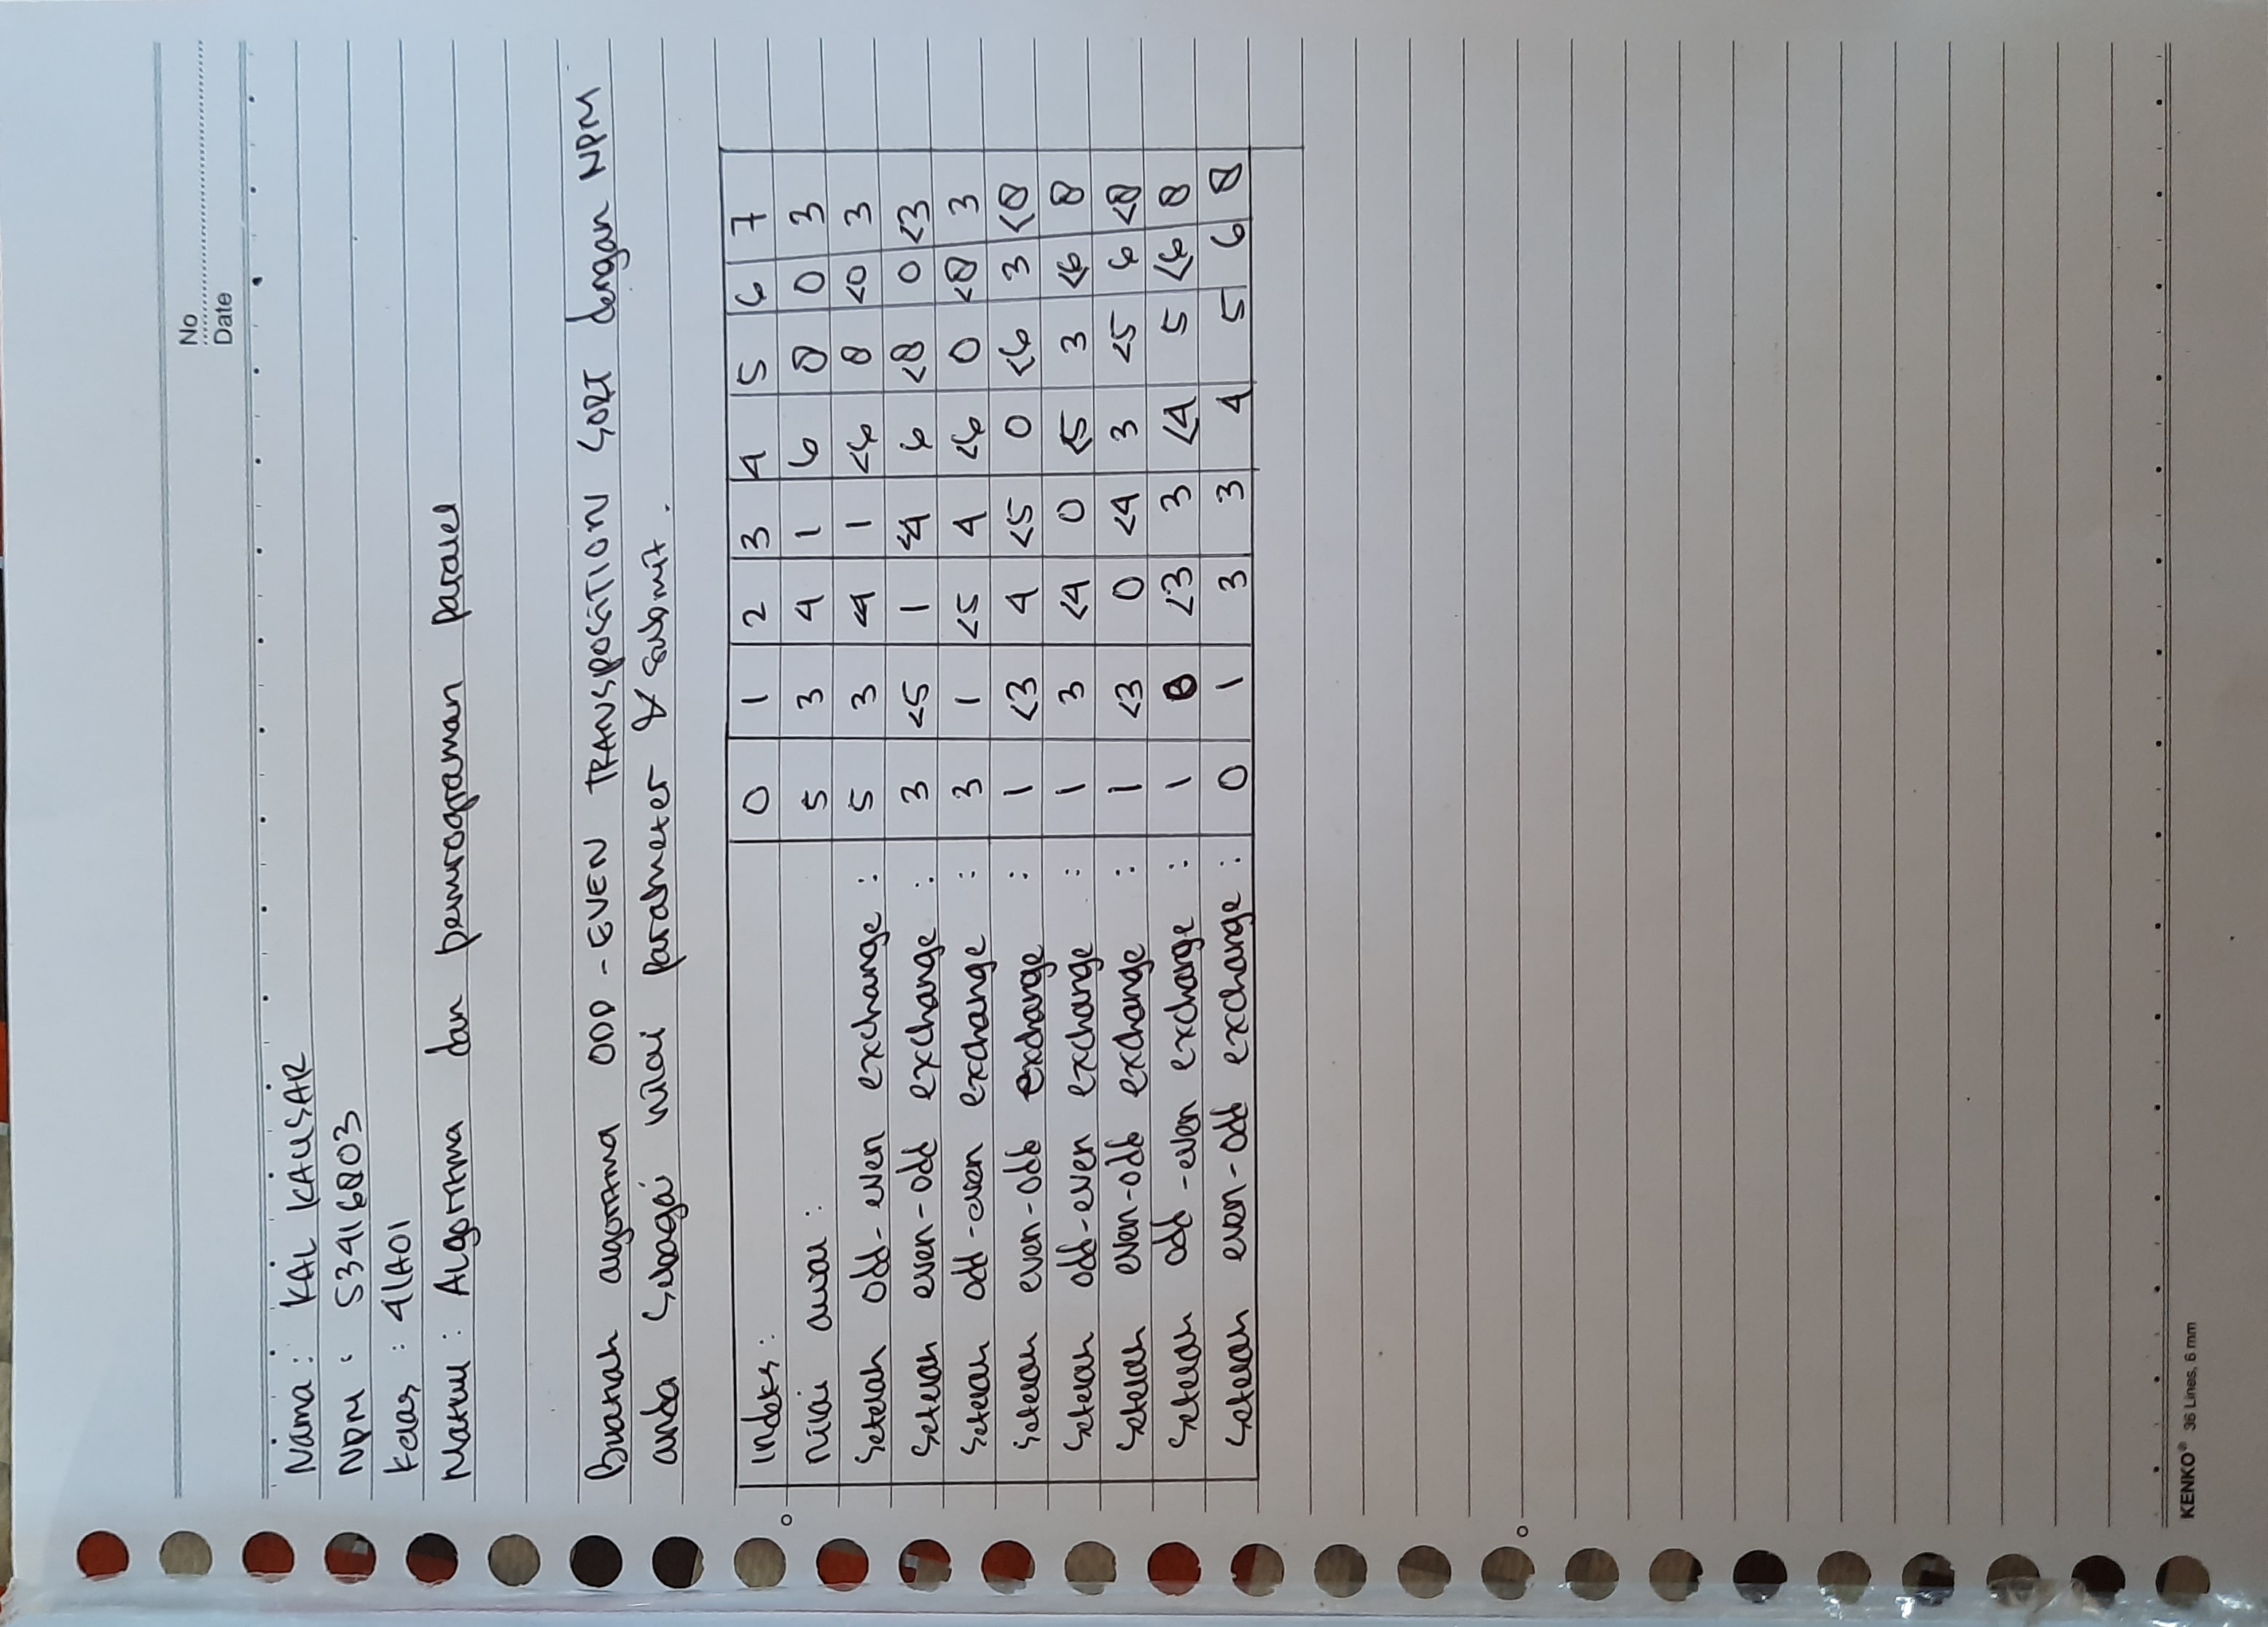 No
Date
Nama : KAL KAUSAR
NPM : 53416803
Kelas : 4IA01
Matkul : Algoritma dan pemrograman Paralel
Buatlah algoritma ODD-EVEN TRANSPOSITION SORT dengan NPM
anda sebagai nilai parameter & submit.
Indeks : 0 1 2 3 4 5 6 7
Nilai awal : 5 3 4 1 6 8 0 3
Setelah odd-even exchange : 5 3 <4 1 <6 8 <0 3
Setelah even-odd exchange : 3 <5 1 <4 6 <8 0 <3
Setelah odd-even exchange : 3 1 <5 4 <6 0 <8 3
Setelah even-odd exchange : 1 <3 4 <5 0 <6 3 <8
Setelah odd-even exchange : 1 3 <4 0 <5 3 <6 8
Setelah even-odd exchange : 1 <3 0 <4 3 <5 6 <8
Setelah odd-even exchange : 1 0 <3 3 <4 5 <6 8
Setelah even-odd exchange : 0 1 3 3 4 5 6 8
KENKO® 36 Lines, 6 mm